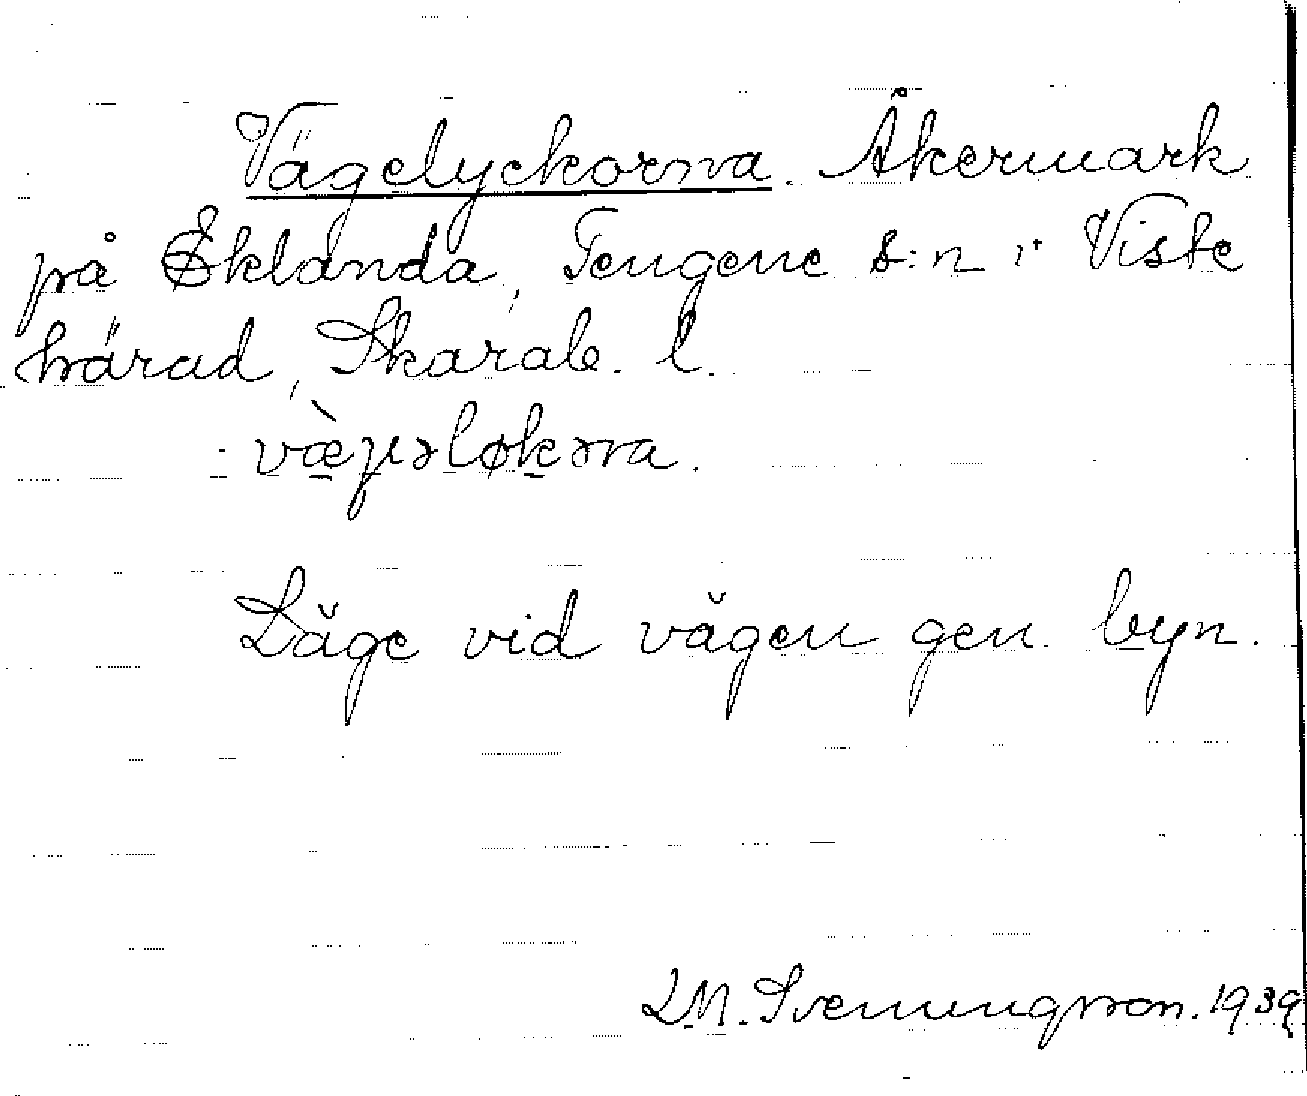 Vägelyckorna. Åkermark
på Eklanda, Tengene s:n i Viste
härad, Skarab. l.
væ̀gəløkəɹna.
Läge vid vägen gen. byn.
L.M. Svenungsson. 1939